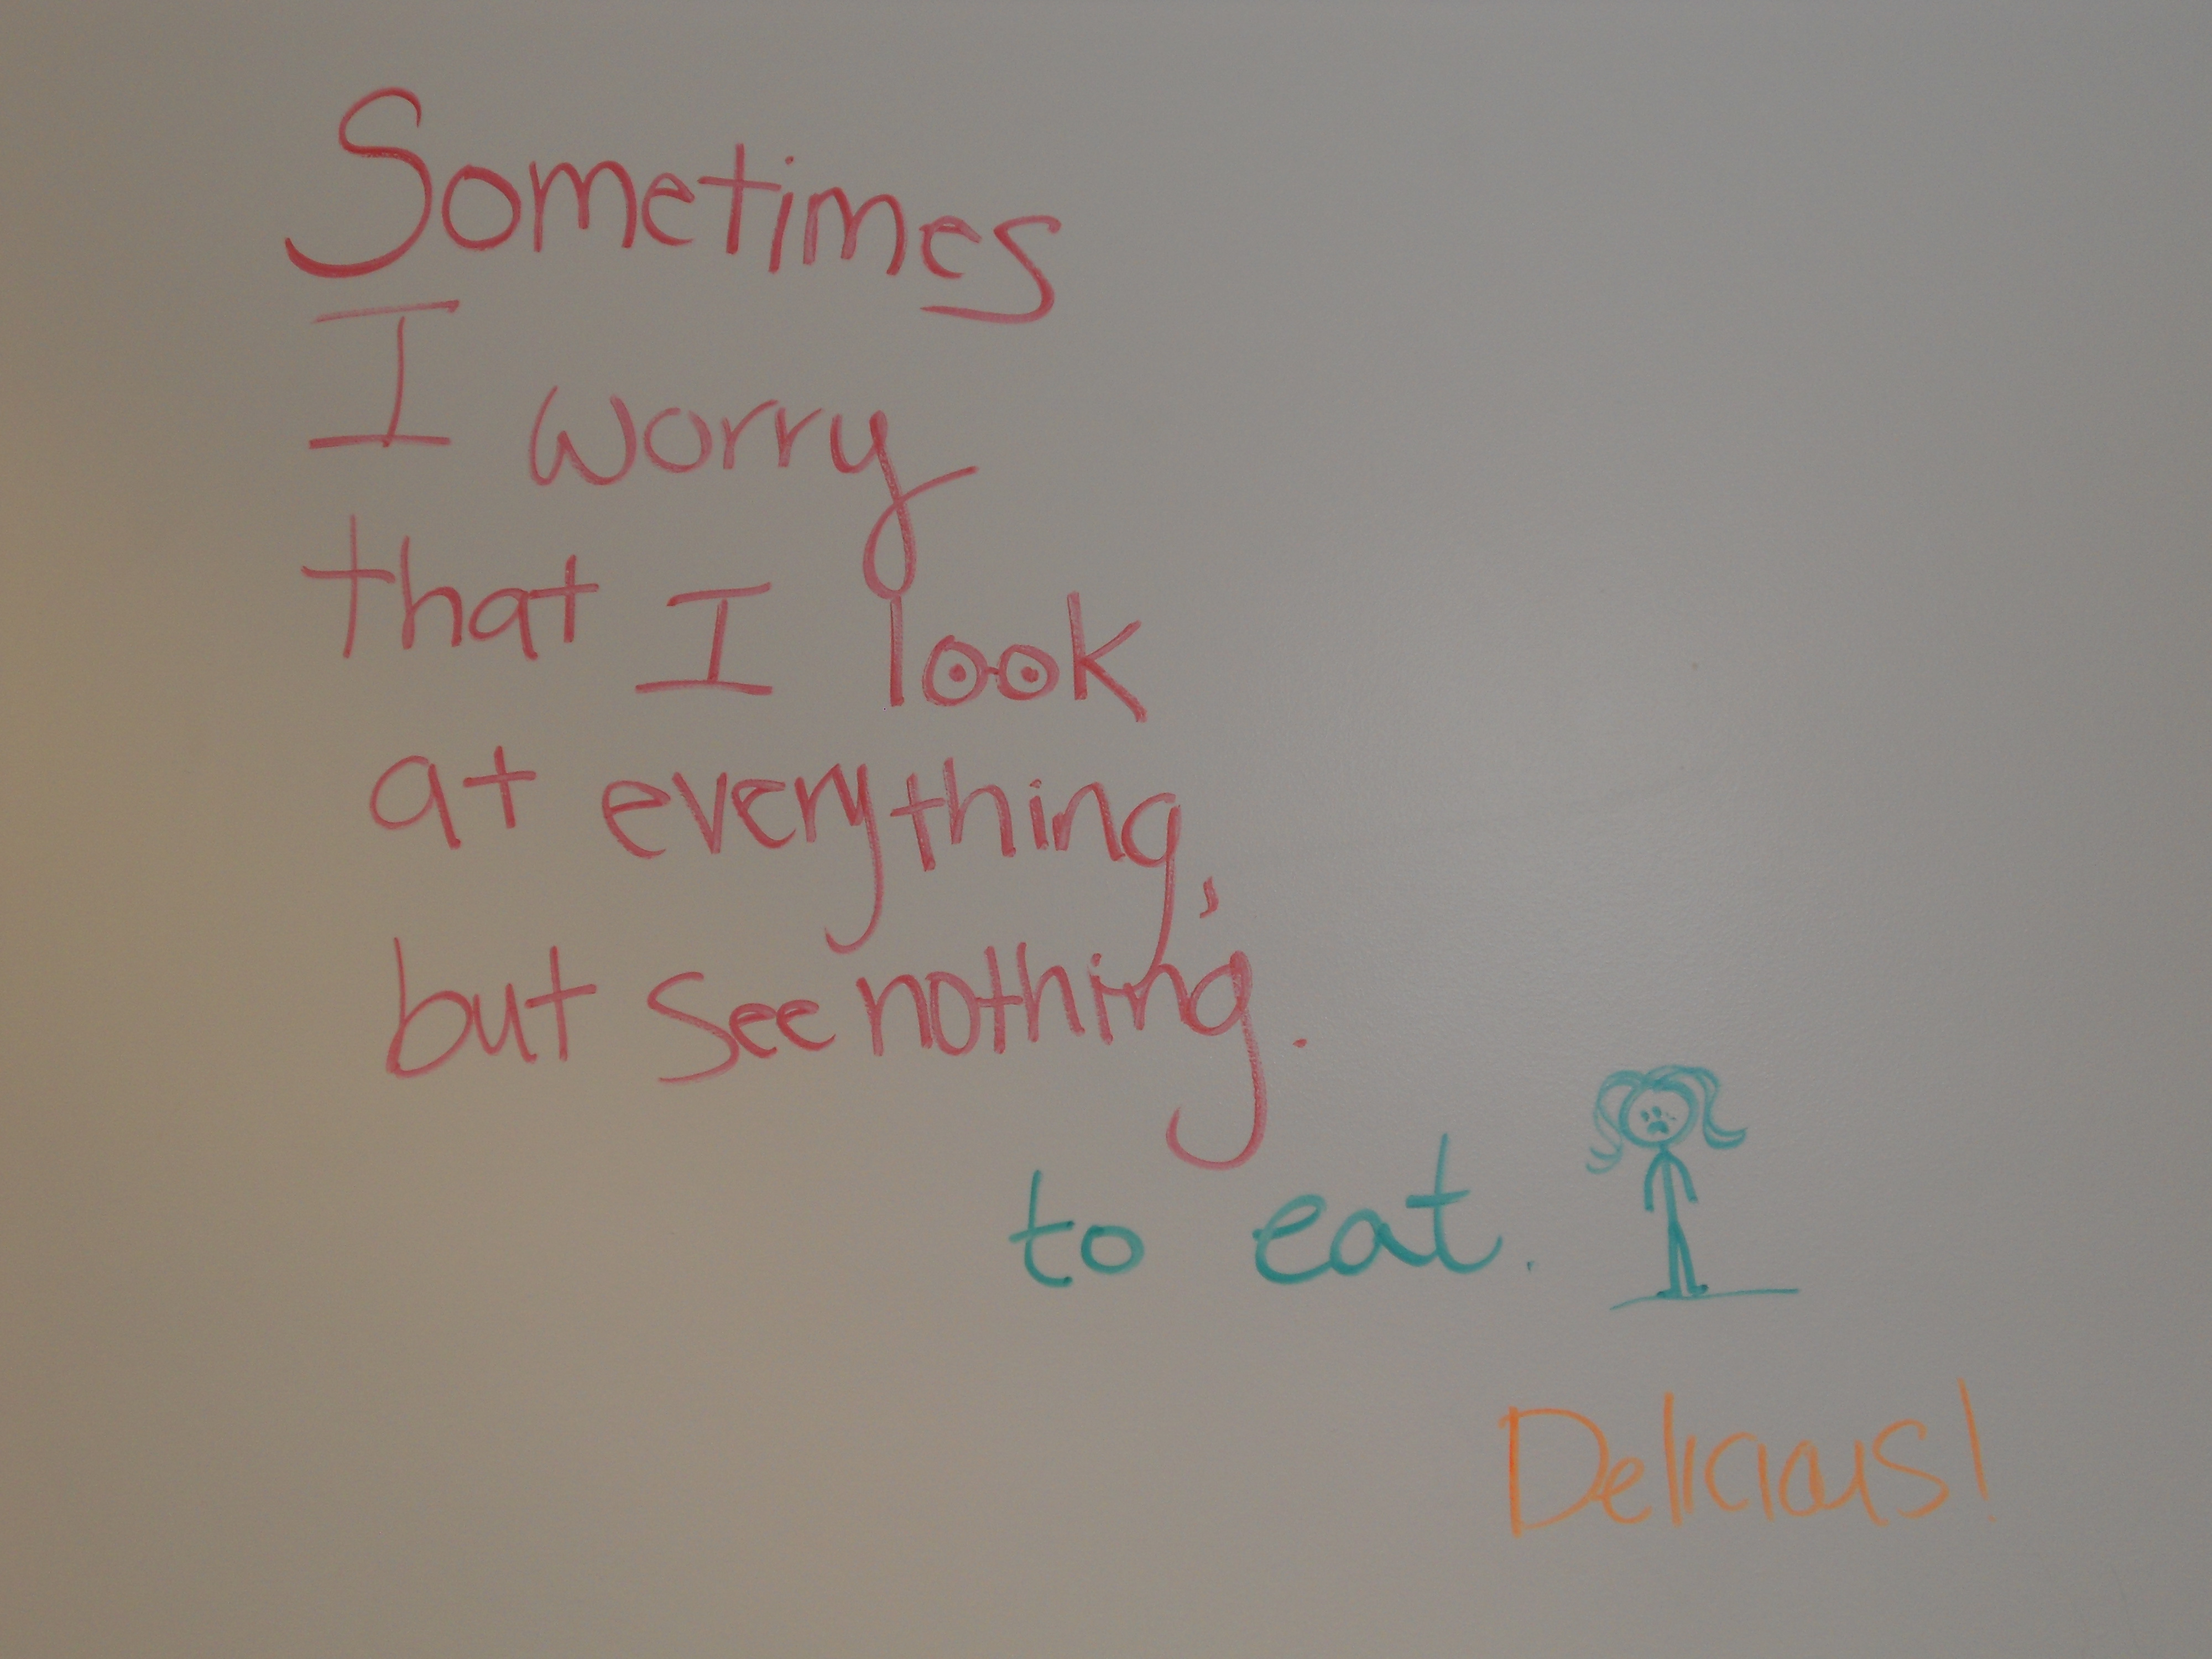 Sometimes
I worry
that I look
at everything,
but see nothing.
to eat.
Delicious!